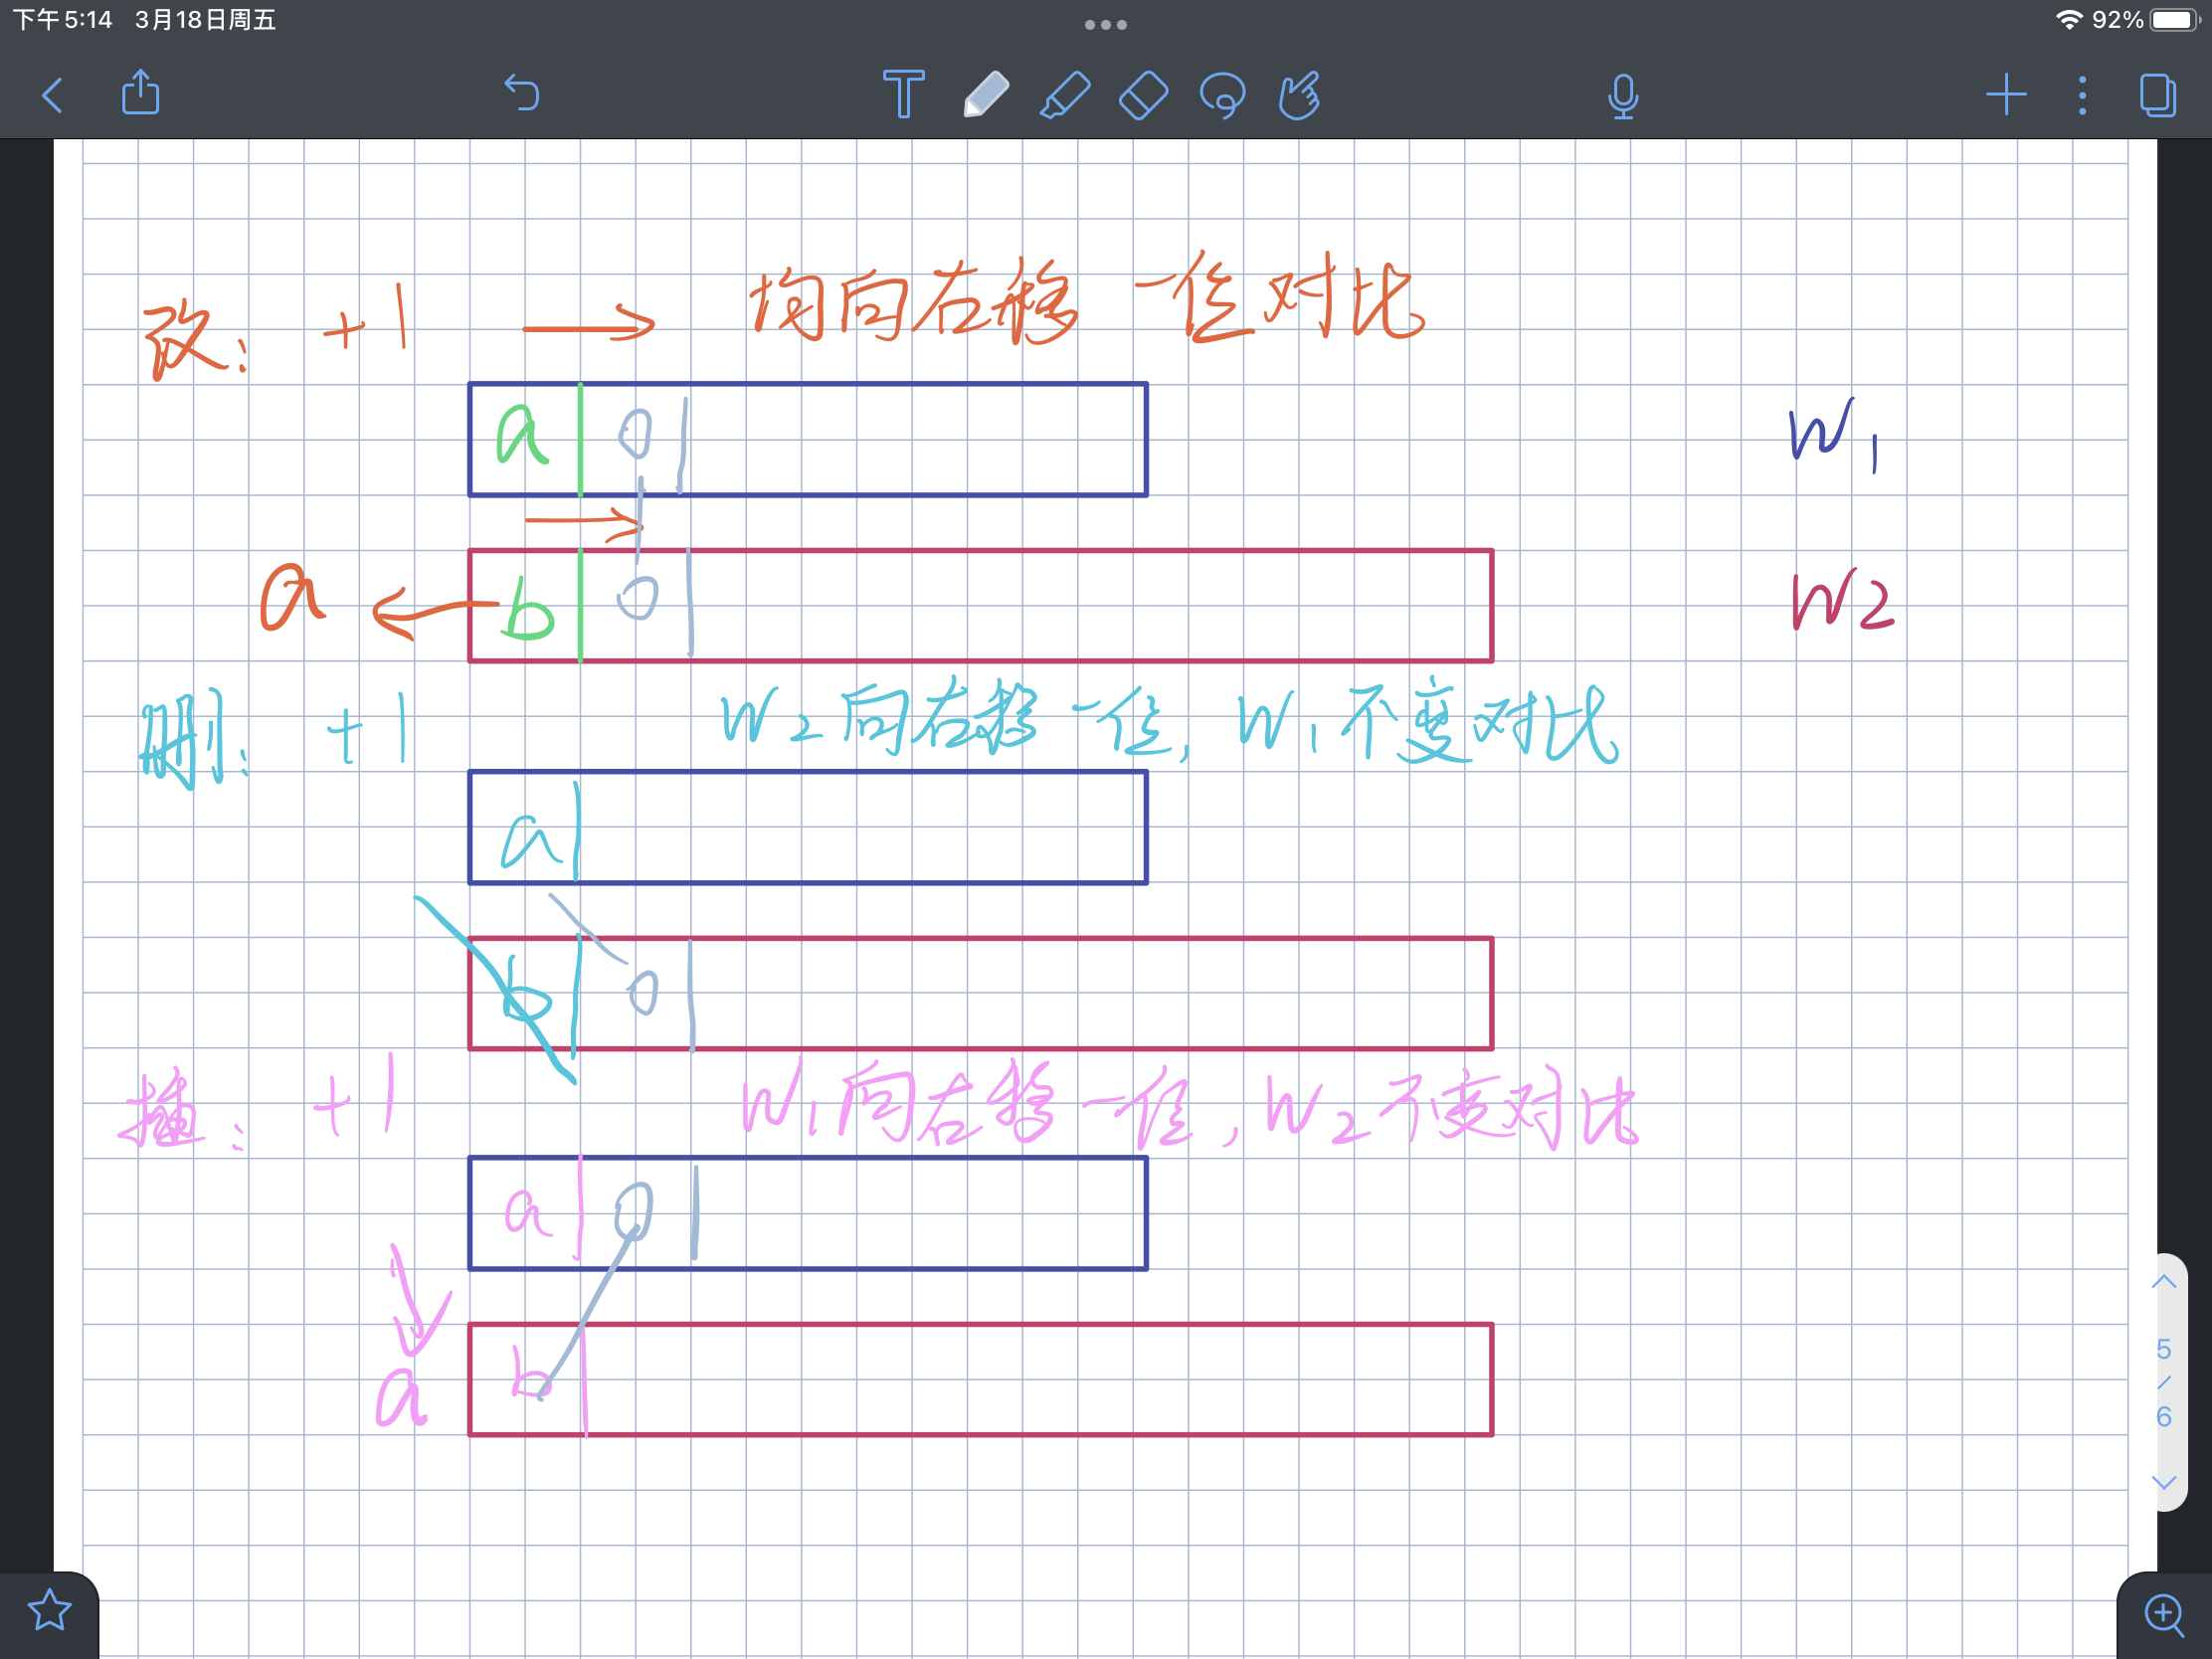 下午5:14 3月18日周五 92%
改: +1 → 均向右移一位对比
a 0 W1
a ← b 0 W2
删: +1 W2向右移一位, W1不变对比
a
b 0
插: +1 W1向右移一位, W2不变对比
a 0
a b
5
/
6